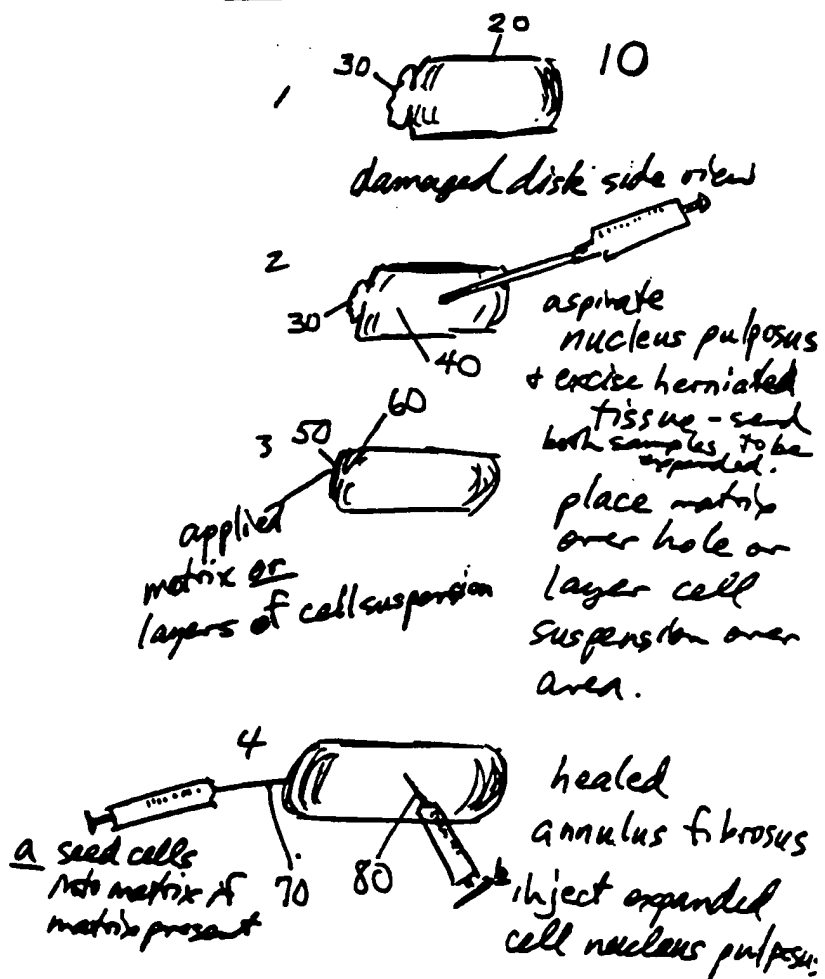 20
30
10
1
damaged disk side view
2
30
40
aspirate
nucleus pulposus
+ excise herniated
tissue - send
both samples to be
expanded.
3
50
60
applied
matrix or
layers of cell suspension
place matrix
over hole or
layer cell
suspension over
area.
4
70
80
a seed cells
into matrix if
matrix present
healed
annulus fibrosus
b
inject expanded
cell nucleus pulposus